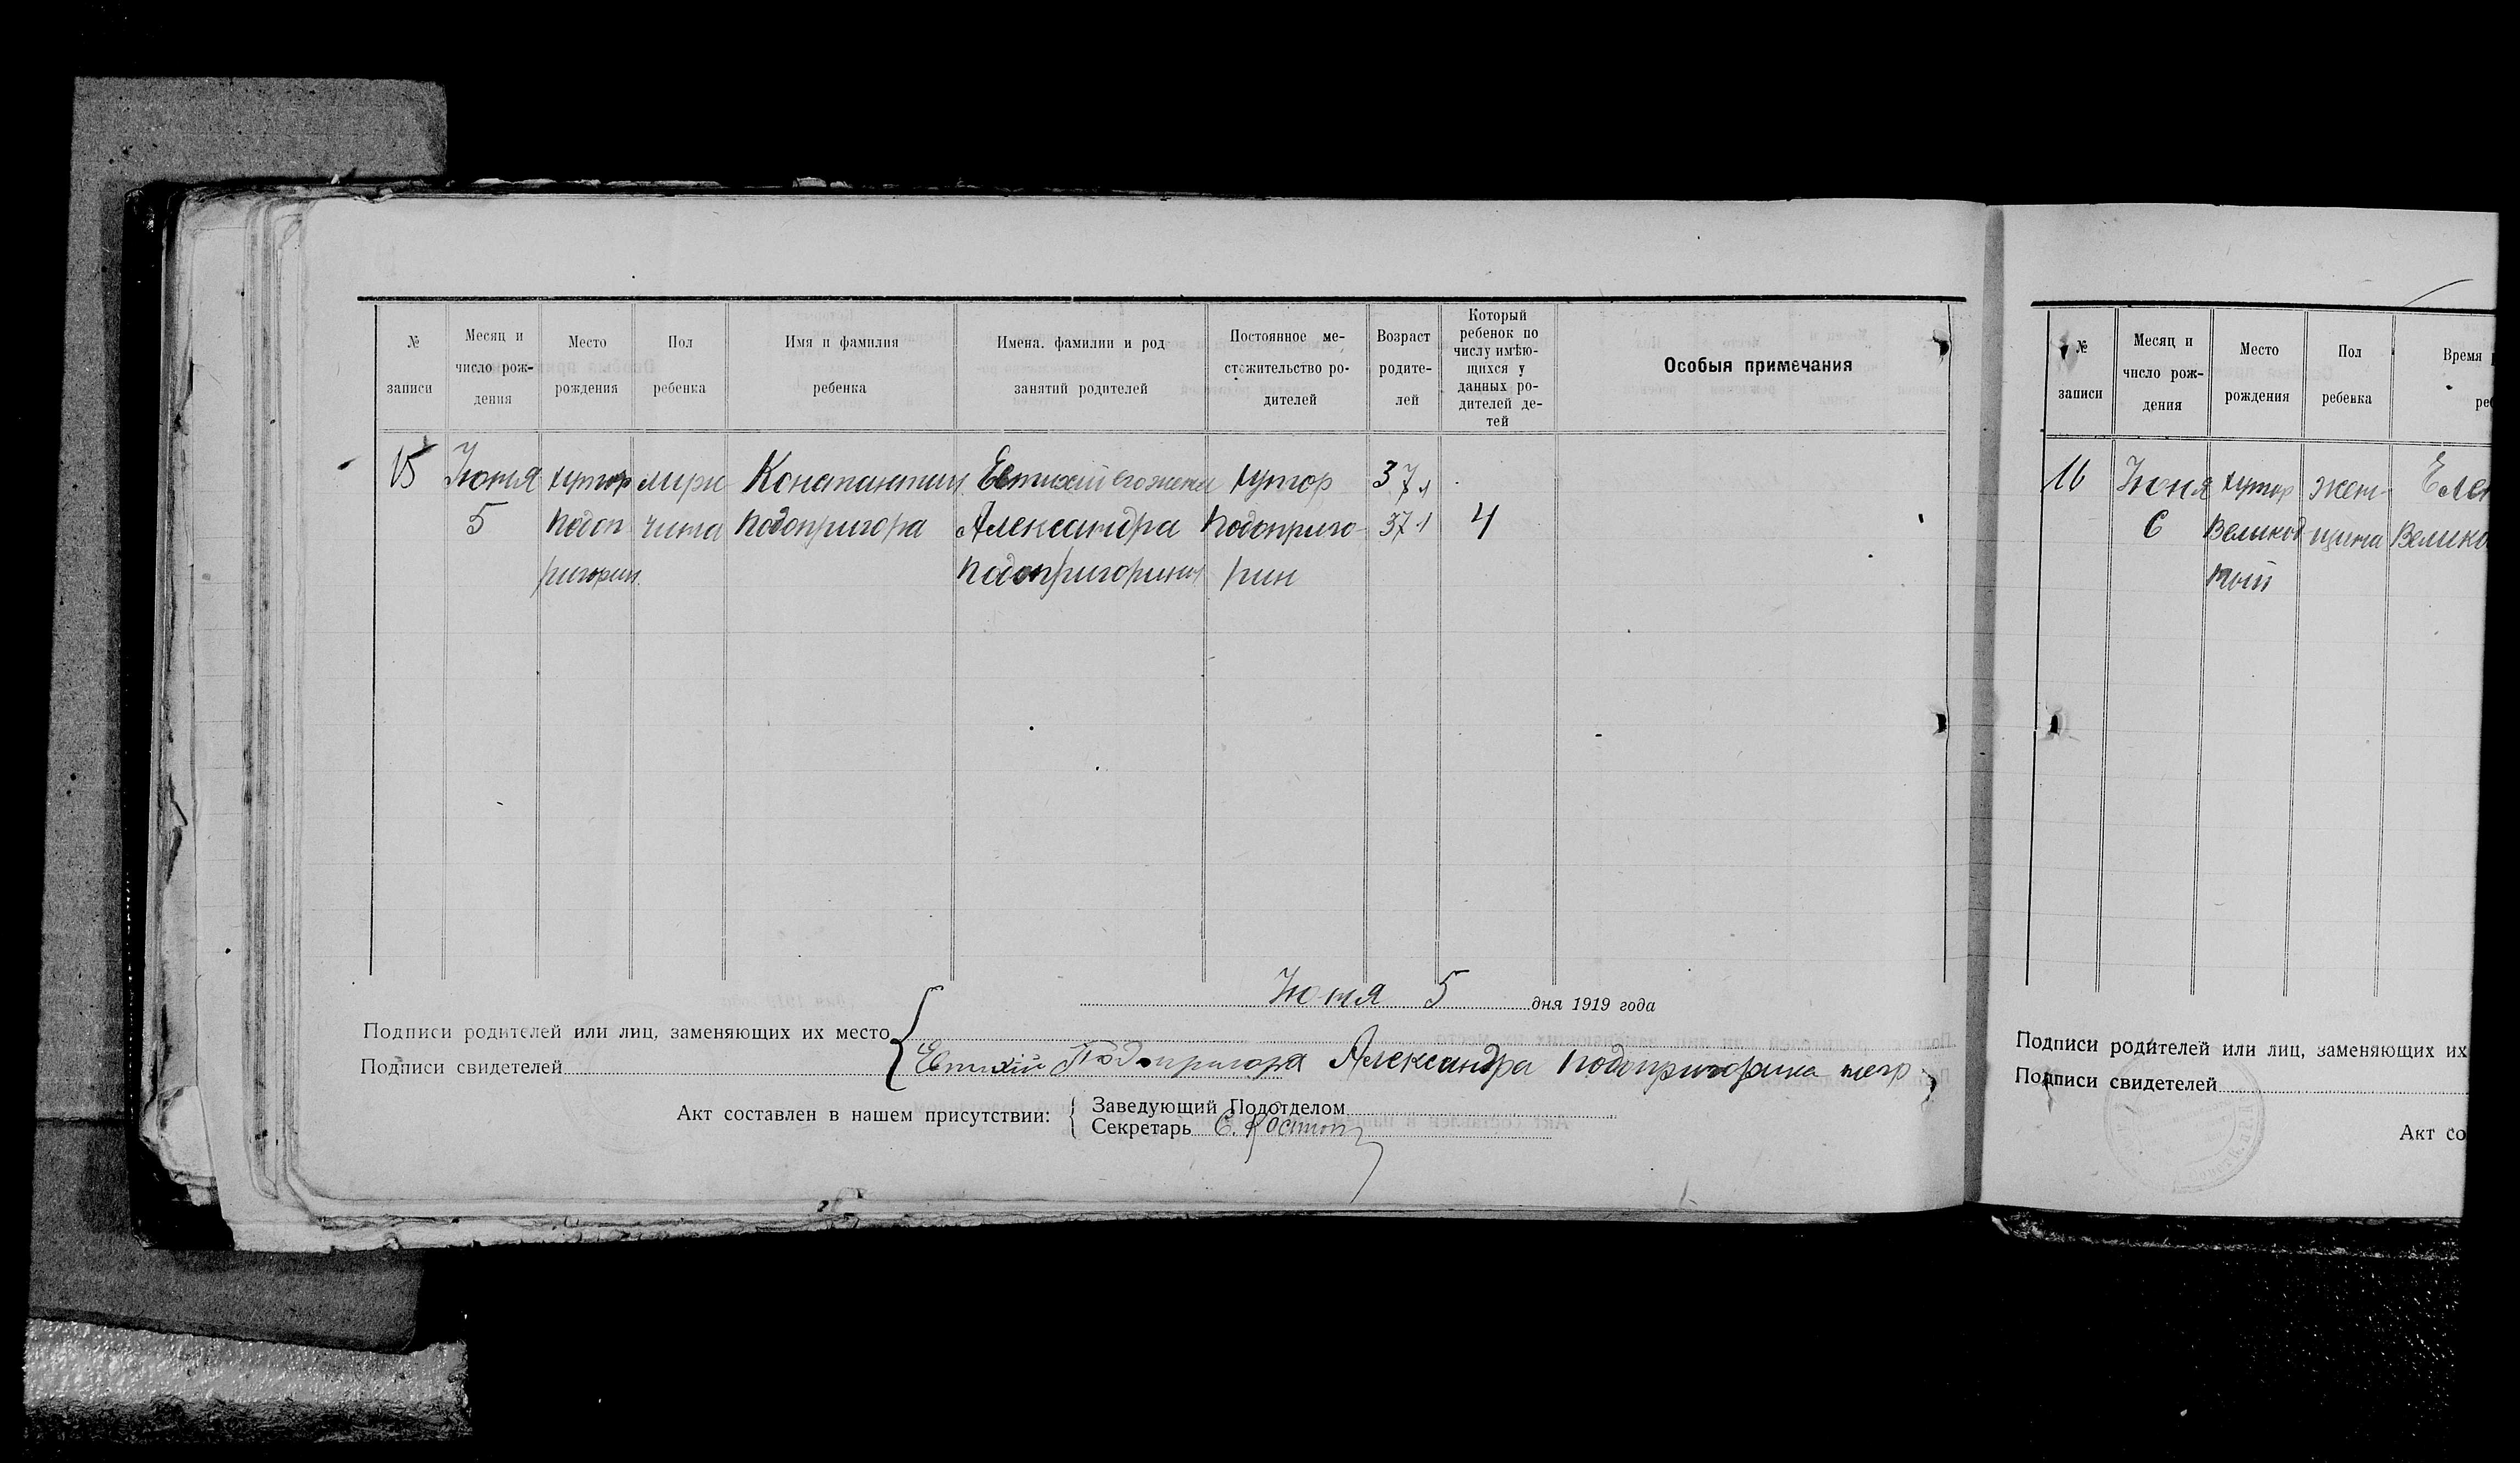 № записи
Месяц и число рож-дения
Место рождения
Пол ребенка
Имя и фамилия ребенка
Имена. фамилии и род занятий родителей
Постоянное ме-стожительство ро-дителей
Возраст родите-лей
Который ребенок по числу имѣю-щихся у данных ро-дителей де-тей
Особыя примечания
15
Июня
5
хутор
Подоп
ригорин
мущи
чина
Константин
Подопригора
Евтихий его жена
Александра
Подопригорины
хутор
Подоприго
рин
37 л
37 л
4
Июня 5 дня 1919 года
Подписи родителей или лиц, заменяющих их место
Подписи свидетелей
Евтихiй Подопригора Александра Подопригорина негр
Акт составлен в нашем присутствии:
Заведующий Подотделом
Секретарь С.
№ записи
Месяц и число рож-дения
Место рождения
Пол ребенка
Время
реб
16
Июня
6
хутор
Великод
ный
жен
щина
Елен
Велико
Подписи родителей или лиц, заменяющих их
Подписи свидетелей
Акт со